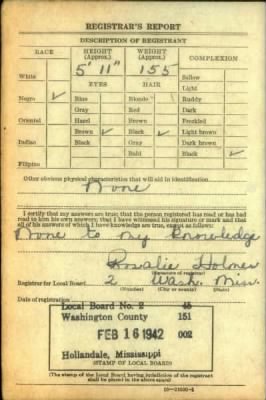 REGISTRAR'S REPORT
DESCRIPTION OF REGISTRANT
RACE HEIGHT (Approx.) WEIGHT (Approx.) COMPLEXION
5' 11" 155
White Sallow
EYES HAIR Light
Negro ✓ Blue Blonde Ruddy
Gray Red Dark
Oriental Hazel Brown Freckled
Brown ✓ Black ✓ Light brown
Indian Black Gray Dark brown
Bald Black ✓
Filipino
Other obvious physical characteristics that will aid in identification
None
I certify that my answers are true; that the person registered has read or has had read to him his own answers; that I have witnessed his signature or mark and that all of his answers of which I have knowledge are true, except as follows:
None to my Knowledge
Rosalie Holmes
(Signature of registrar)
Registrar for Local Board 2 Wash. Miss.
(Number) (City or county) (State)
Date of registration
Local Board No. 2 45
Washington County 151
FEB 16 1942 002
Hollandale, Mississippi
(STAMP OF LOCAL BOARD)
(The stamp of the Local Board having jurisdiction of the registrant shall be placed in the above space)